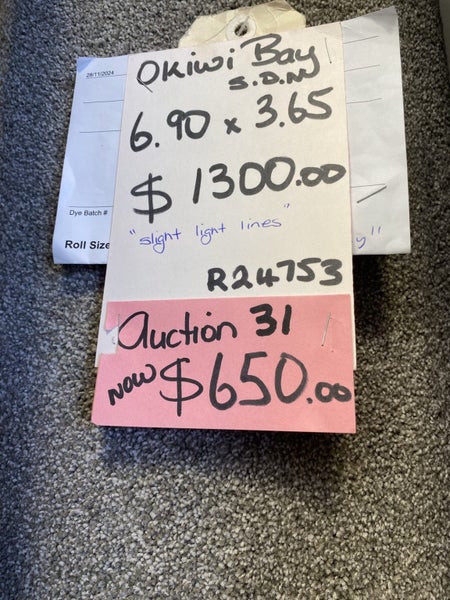 28/11/2024
Okiwi Bay
S.D.N
6.90 x 3.65
$ 1300.00
Dye Batch #
"slight light lines"
Roll Size
y"
R24753
Auction 31
NOW $650.00